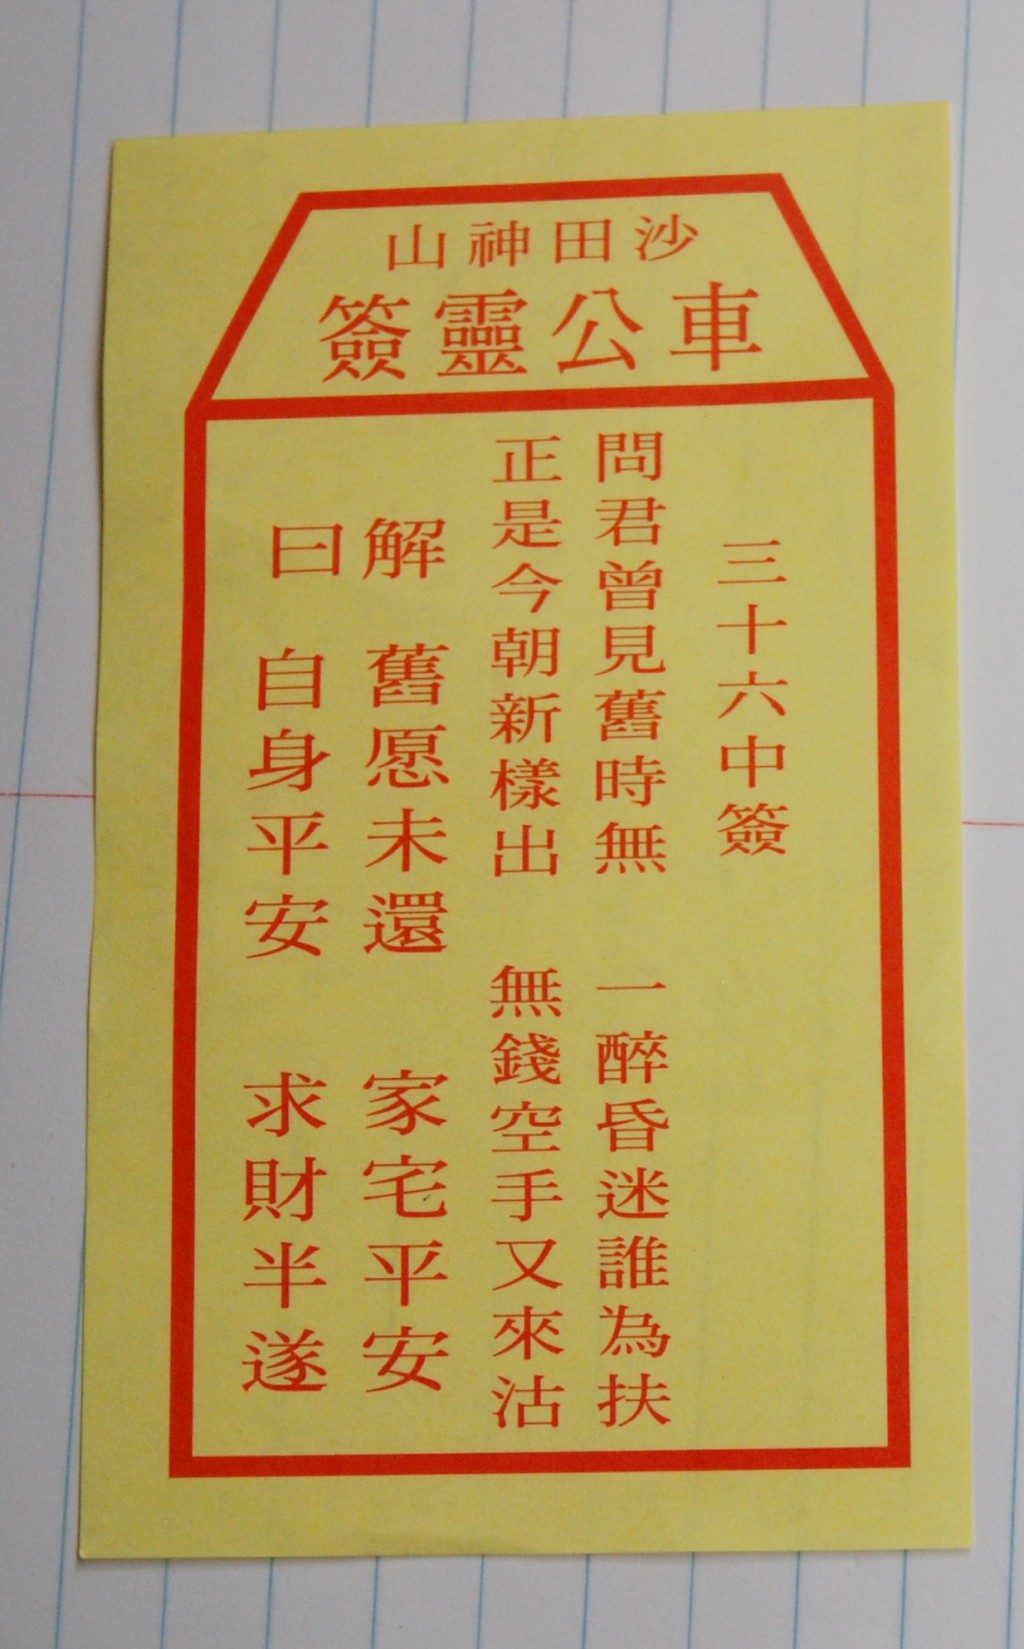 沙田神山
車公靈簽
三十六中簽
問君曾見舊時無　一醉昏迷誰為扶
正是今朝新樣出　無錢空手又來沽
解　舊愿未還　家宅平安
曰　自身平安　求財半遂